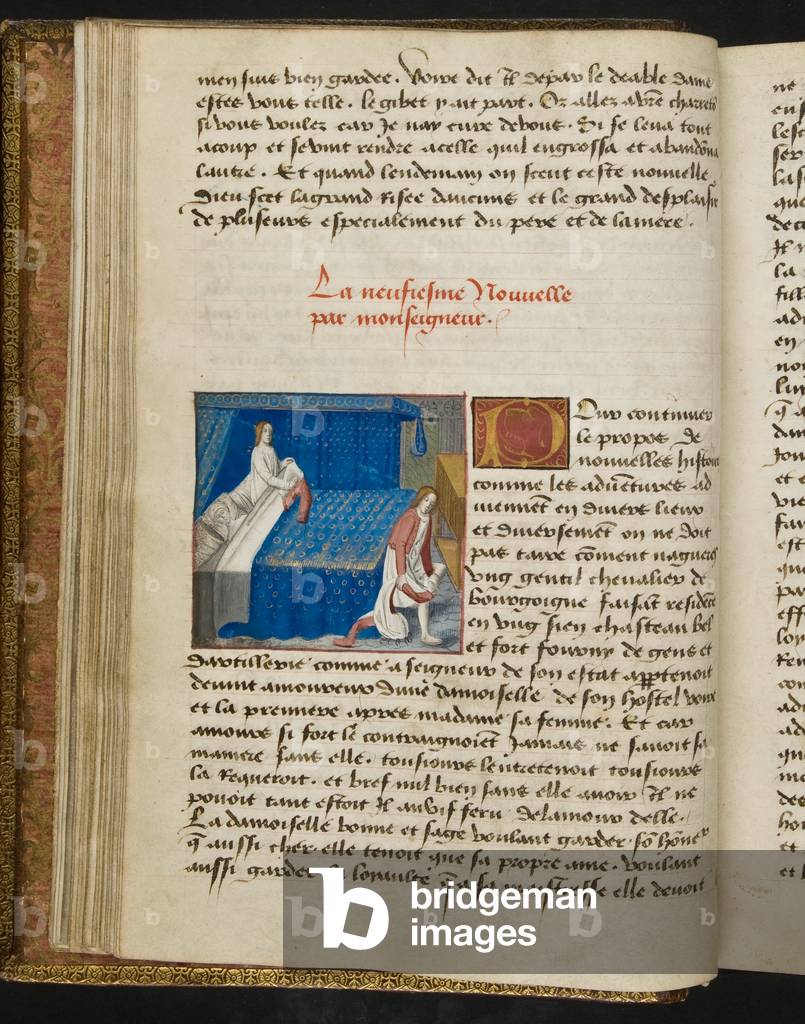 men suis bien gardee. Voire dit Il depar le deable dame
estes vous telle. le gibet y ait part. Or allez a vre charreto
si vous voulez car Je nay cure de vous. Si se leva tout
acoup et sevint rendre a celle quil engrossa et abandōna
lautre. Et quand lendemain on sceut ceste nouvelle
Dieu scet lagrand Risee daucuns et le grand desplaisir
de pluseurs especialement du pere et de la mere.
La neufiesme Nouvelle
par monseigneur.
Pour continuer
le propos de
nouvelles histoi
comme les advētures ad
viennēt en divers lieux
et diversemēt on ne doit
pas taire cōment nagueres
ung gentil chevalier de
bourgoigne faisāt residēce
en ung sien chasteau bel
et fort fourny de gens et
dartillerie comme a seigneur de son estat apptenoit
devint amoureux dune damoiselle de son hostel voire
et la premiere apres madame sa femme. Et car
amours si fort le contraignoiēt Jamais ne savoit sa
maniere sans elle. tousiours lentretenoit tousiours
la Requeroit. et bref nul bien sans elle avoir Il ne
povoit tant estoit Il au vif feru de lamour delle.
La damoiselle bonne et sage voulant garder sō hōne
q̄ aussi cher elle tenoit que sa propre ame. voulant
aussi garder la loyaulte q̄ a sa maistresse elle devoit
bridgeman
images